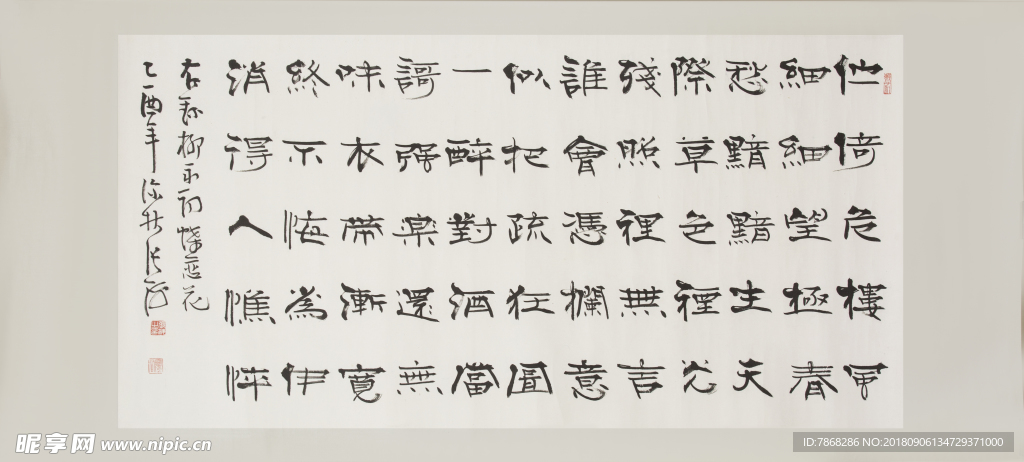 他倚危樓風
細細望極春
愁黯黯生天
際草色裡光
殘照裡無言
誰會憑欄意
似把疏狂圖
一醉對酒當
謌强樂還無
味衣帶漸寬
終不悔為伊
消得人憔悴
右錄柳永詞蝶恋花
乙酉年
昵享网 www.nipic.cn
ID:7868286 NO:20180906134729371000